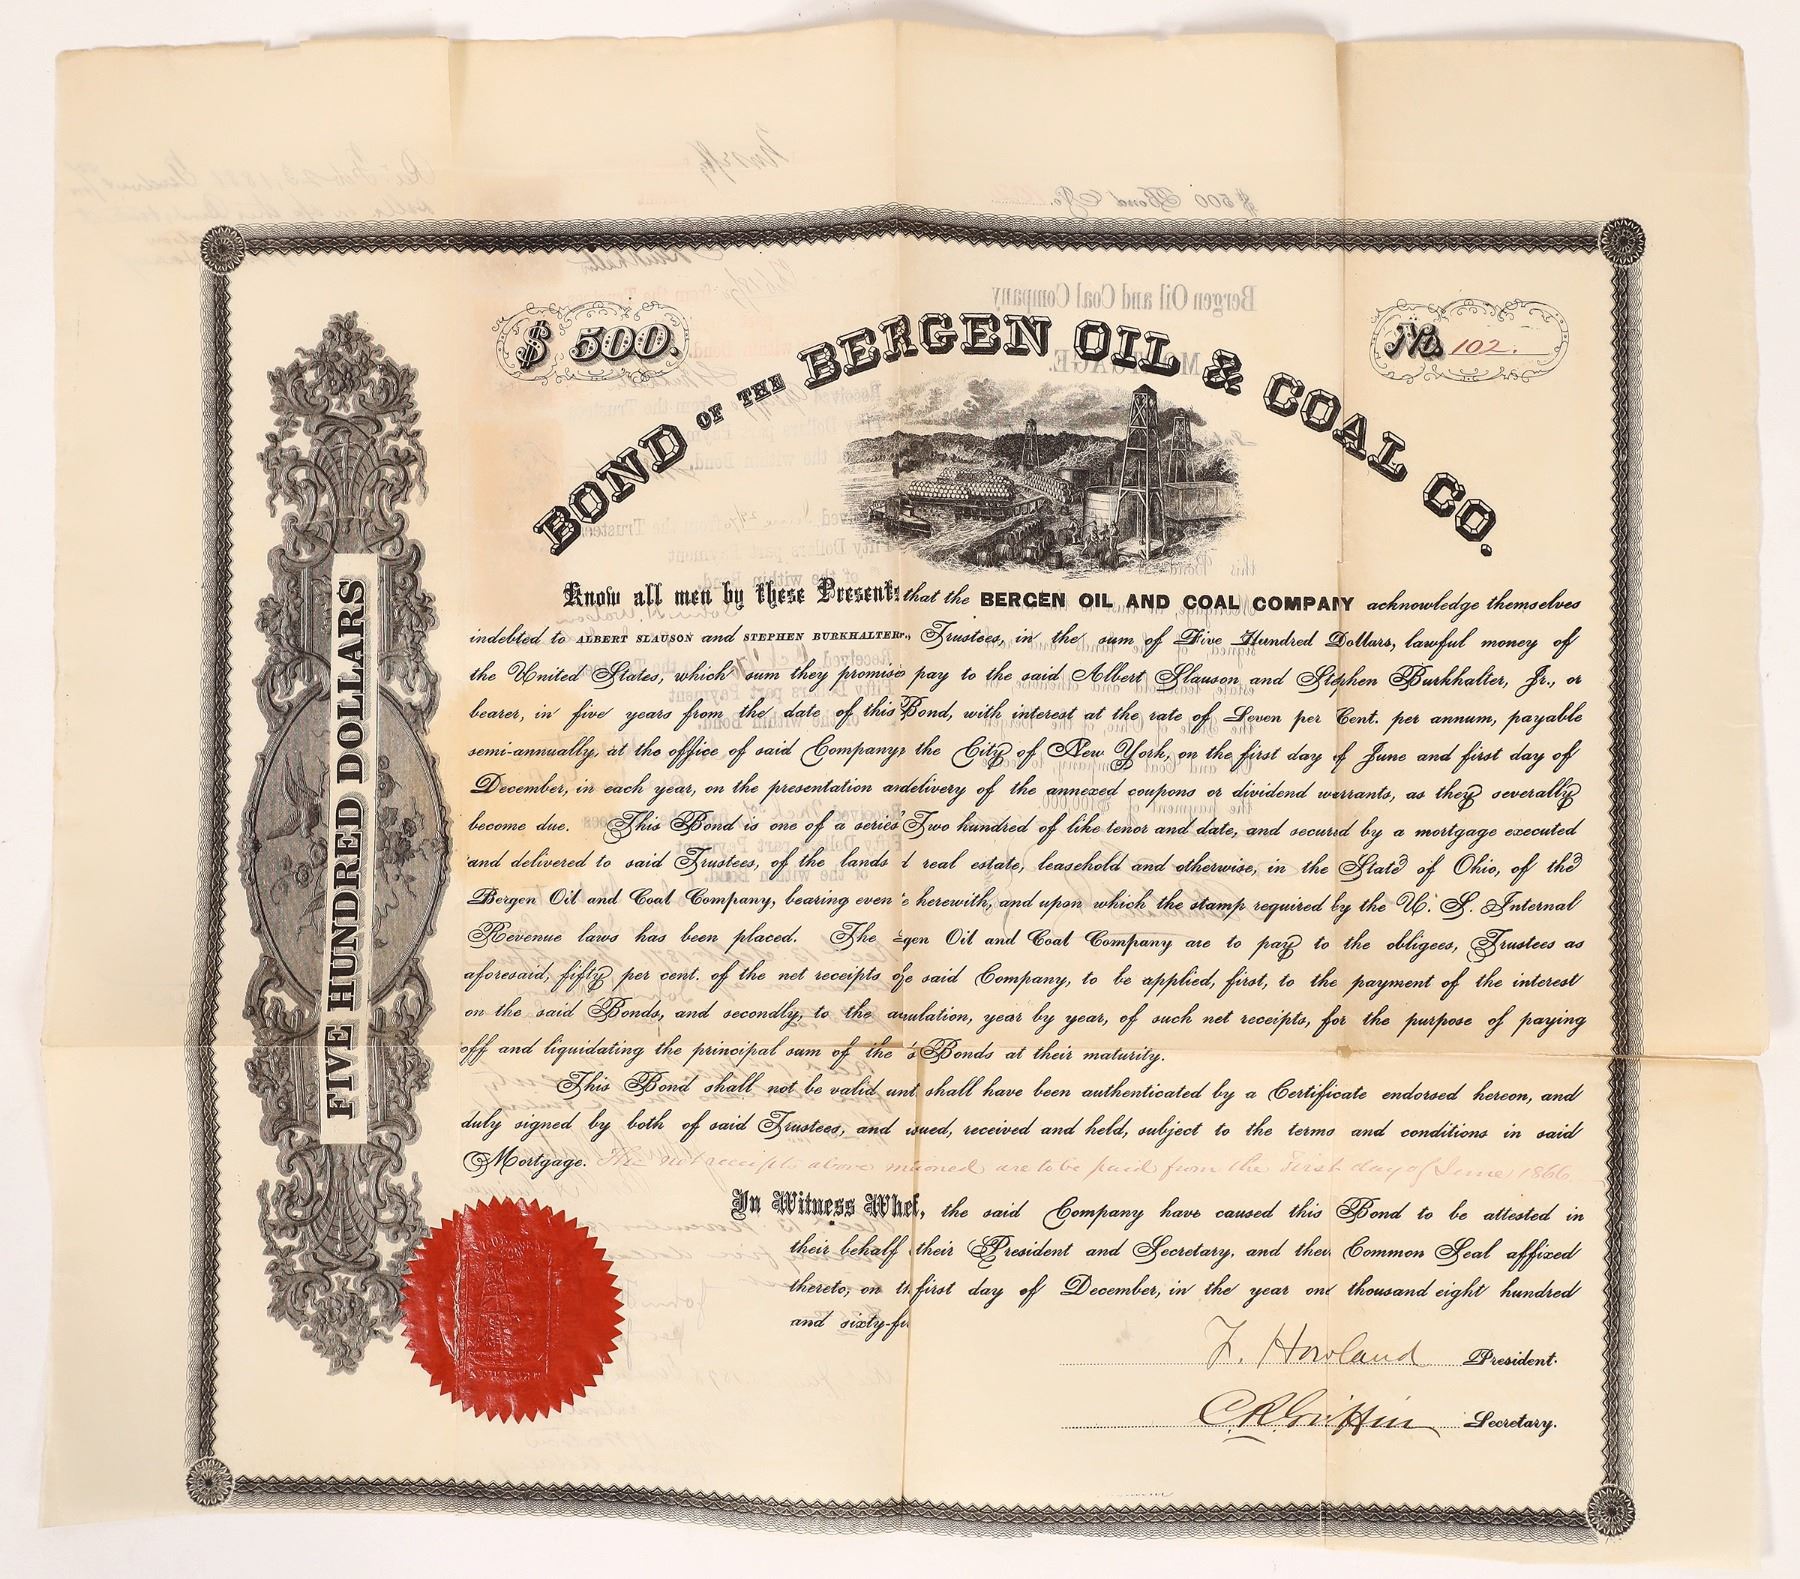 $ 500.
No 102.
BOND OF THE BERGEN OIL & COAL CO.
FIVE HUNDRED DOLLARS
Know all men by these Present that the BERGEN OIL AND COAL COMPANY acknowledge themselves
indebted to ALBERT SLAUSON and STEPHEN BURKHALTER, Trustees, in the sum of Five Hundred Dollars, lawful money of
the United States, which sum they promise pay to the said Albert Slauson and Stephen Burkhalter, Jr., or
bearer, in five years from the date of this Bond, with interest at the rate of Seven per Cent. per annum, payable
semi-annually, at the office of said Company, the City of New York, on the first day of June and first day of
December, in each year, on the presentation a delivery of the annexed coupons or dividend warrants, as they severally
become due. This Bond is one of a series Two hundred of like tenor and date, and secured by a mortgage executed
and delivered to said Trustees, of the lands d real estate, leasehold and otherwise, in the State of Ohio, of the
Bergen Oil and Coal Company, bearing even e herewith, and upon which the stamp required by the U. S. Internal
Revenue laws has been placed. The gen Oil and Coal Company are to pay to the obligees, Trustees as
aforesaid, fifty per cent. of the net receipts of e said Company, to be applied, first, to the payment of the interest
on the said Bonds, and secondly, to the a ulation, year by year, of such net receipts, for the purpose of paying
off and liquidating the principal sum of the s Bonds at their maturity.
This Bond shall not be valid unt shall have been authenticated by a Certificate endorsed hereon, and
duly signed by both of said Trustees, and i ued, received and held, subject to the terms and conditions in said
Mortgage. The net receipts above m ioned are to be paid from the First day of June 1866.
In Witness Whe , the said Company have caused this Bond to be attested in
their behalf their President and Secretary, and thei Common Seal affixed
thereto, on th first day of December, in the year one thousand eight hundred
and sixty-fi
F. Howland President.
C R Griffin Secretary.